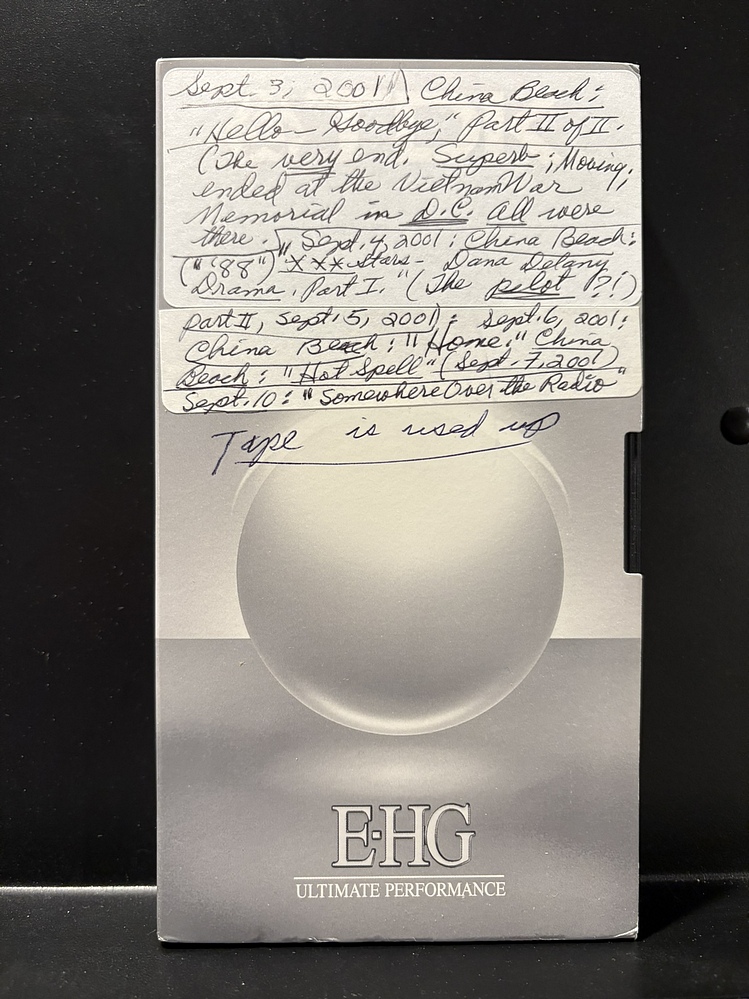 Sept. 3, 2001) China Beach:
"Hello - Goodbye," Part II of II.
(The very end. Superb; Moving;
ended at the Vietnam War
Memorial in D.C. All were
there.) Sept. 4, 2001: China Beach:
("'88") "XXX stars - Dana Delany;
Drama, Part I." (The pilot ?!)
Part II, Sept. 5, 2001): Sept. 6, 2001:
China Beach: "Home." China
Beach: "Hot Spell" (Sept. 7, 2001)
Sept. 10: "Somewhere Over the Radio"
Tape is used up
E·HG
ULTIMATE PERFORMANCE